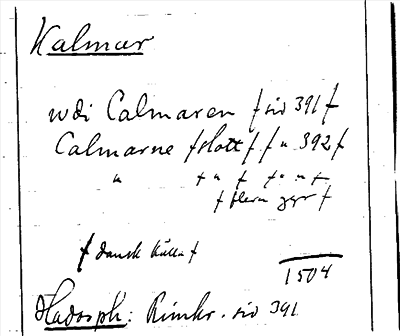 Kalmar
wdi Calmaren / sid 391 /
Calmarne / slott / / " 392 /
" / " / / " " /
/ flera ggr /
/ dansk källa /
1504
Hadorph: Rimkr. sid 391